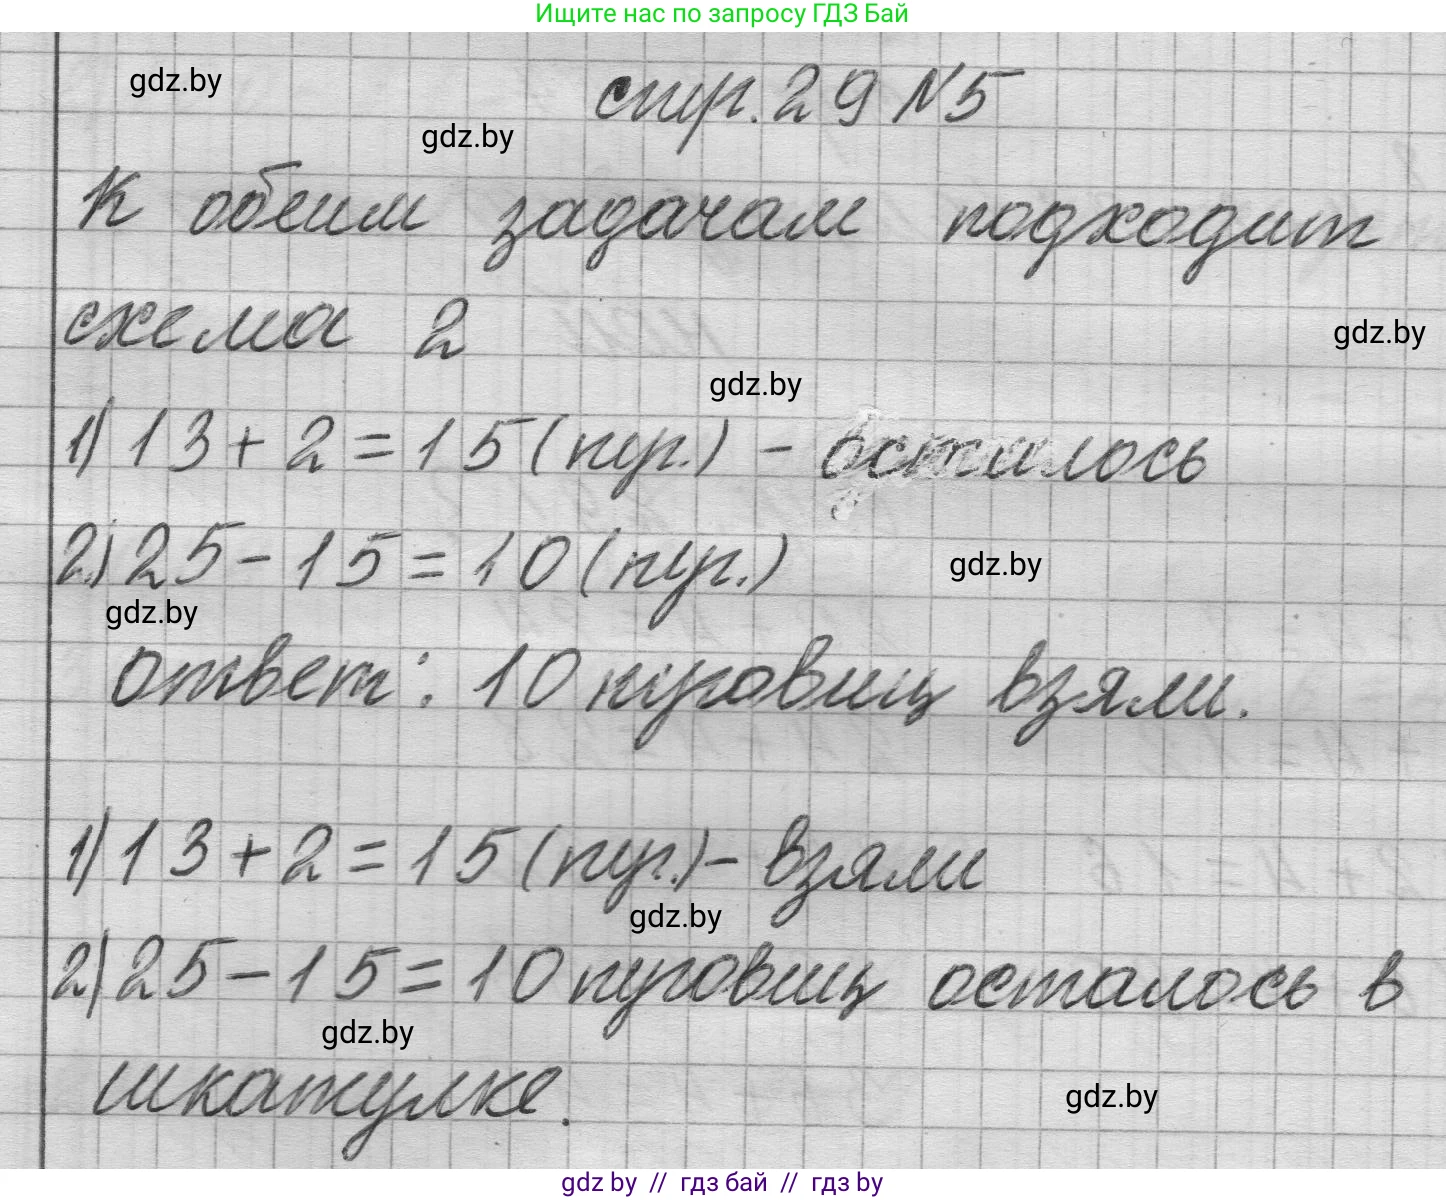 Ищите нас по запросу ГДЗ Бай
gdz.by
стр. 29 №5
gdz.by
К обеим задачам подходит
схема 2
gdz.by
gdz.by
1) 13 + 2 = 15 (пуг.) - осталось
2) 25 - 15 = 10 (пуг.)
gdz.by
gdz.by
ответ: 10 пуговиц взяли.
1) 13 + 2 = 15 (пуг.) - взяли
gdz.by
2) 25 - 15 = 10 пуговиц осталось в
gdz.by
шкатулке.
gdz.by
gdz by // гдз бай // гдз by